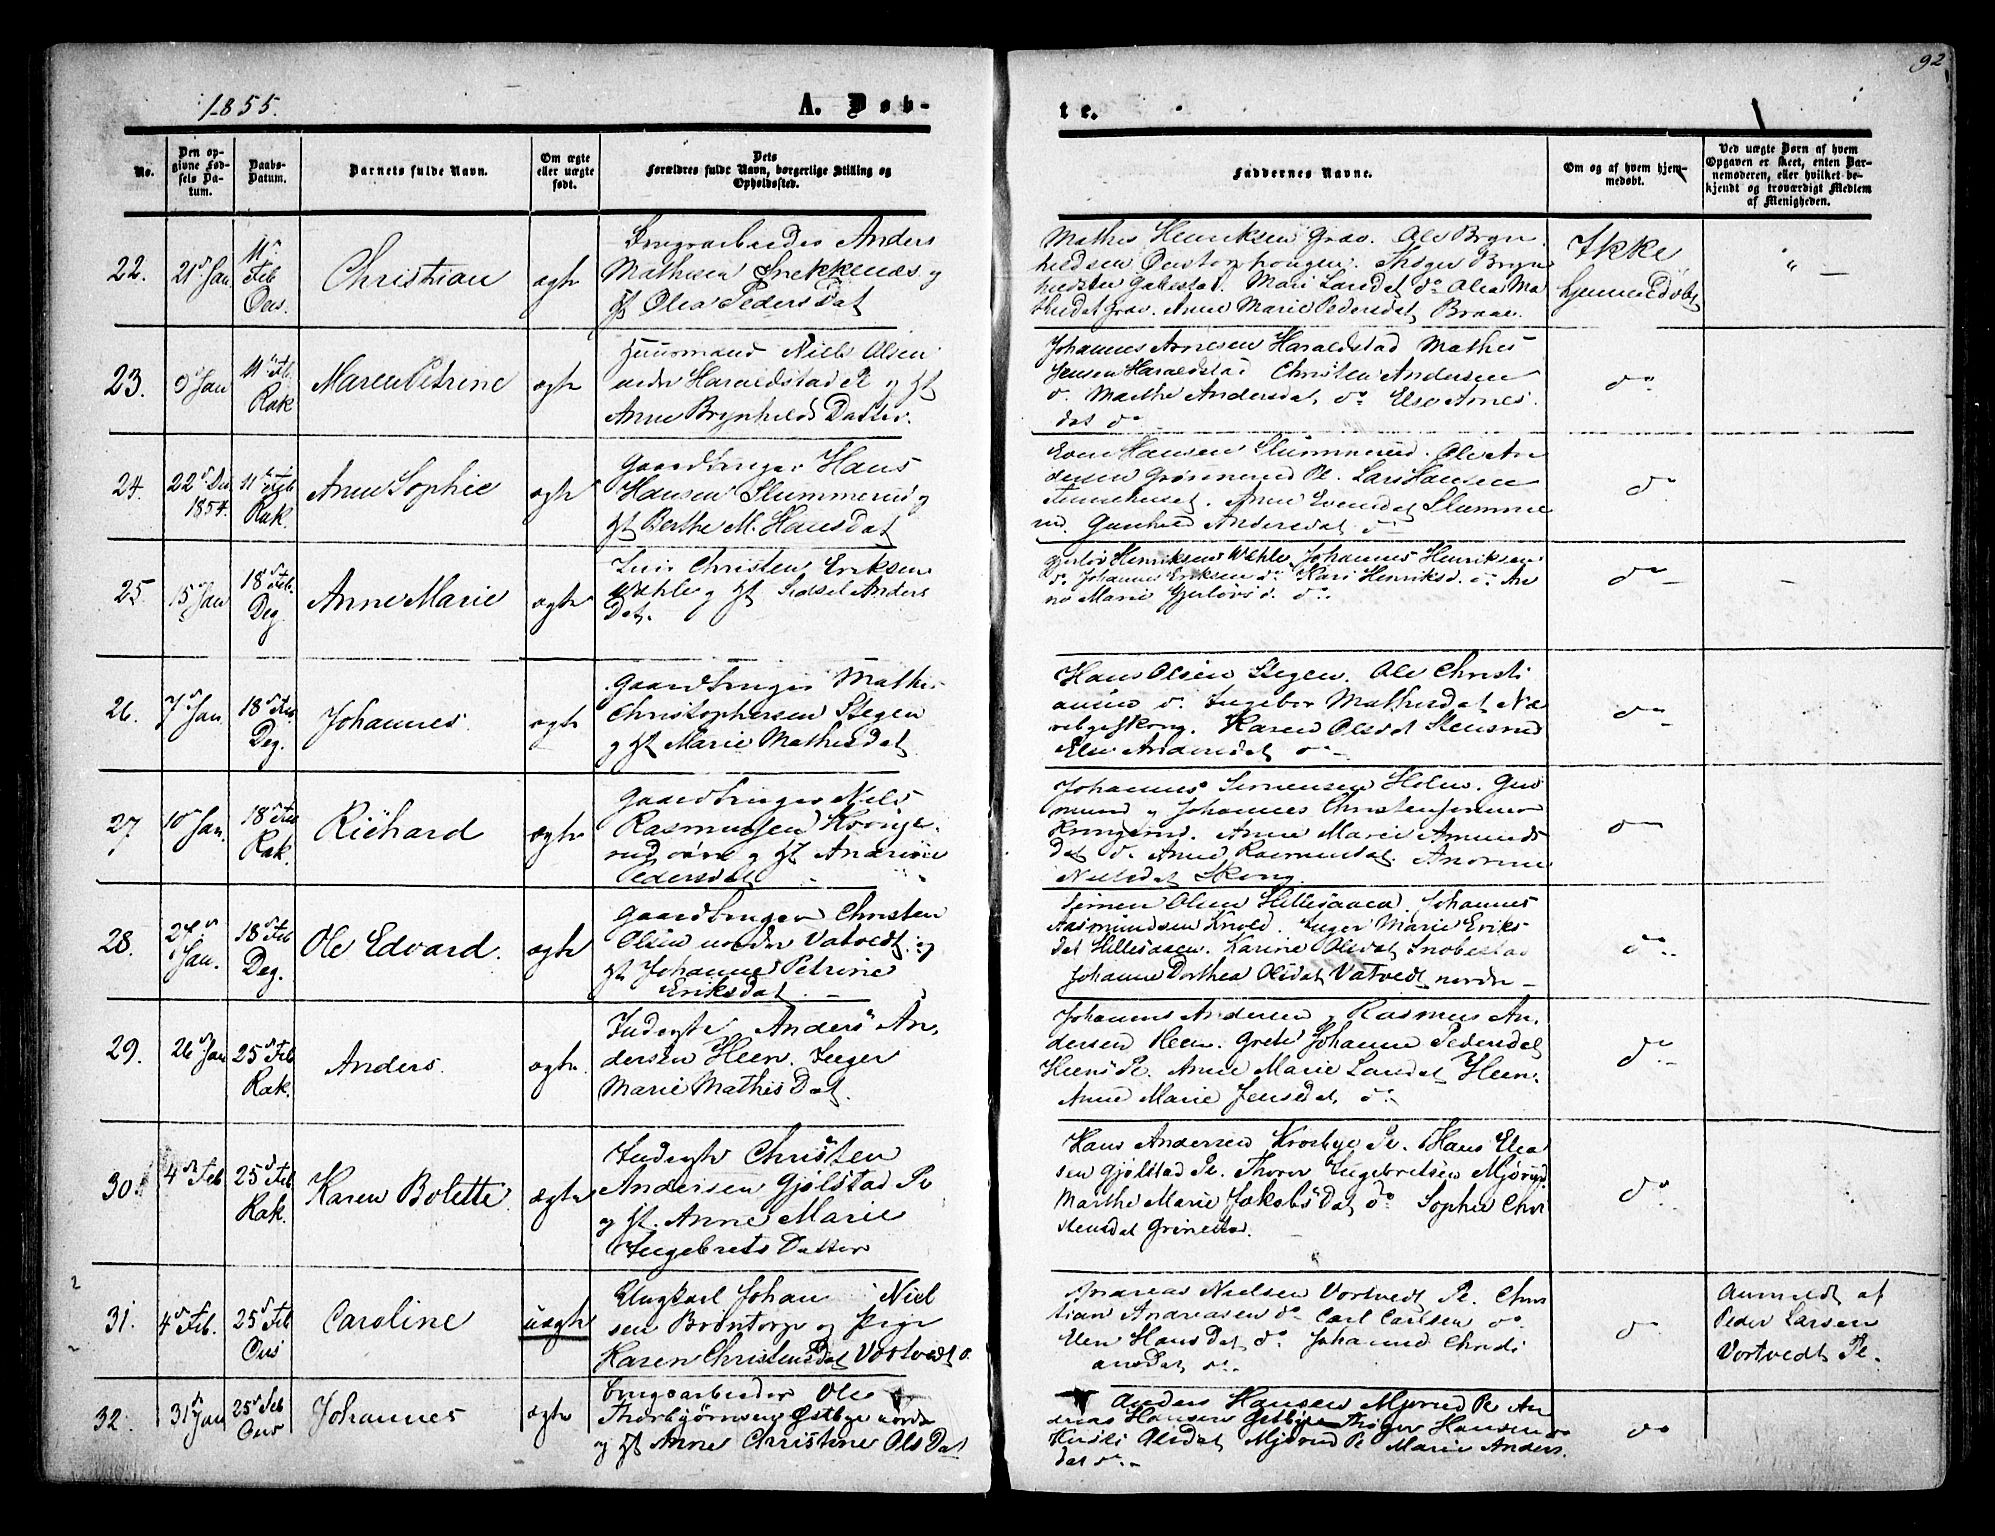 92
1855.
A. Døb-
te.
No.
Den op-
givne Fød-
sels Da-
tum.
Daabs-
Datum.
Barnets fulde Navn.
Om ægte
eller uægte
født.
Dets
Forældres fulde Navn, borgerlige Stilling og
Opholdssted.
Faddernes Navne.
Om og af hvem hjem-
medøbt.
Ved uægte Børn af hvem
Opgaven er skeet, enten Bar-
nemoderen, eller hvilket be-
kjendt og troværdigt Medlem
af Menigheden.
22.
21 Jan
11
Feb
Ous.
Christian
ægte
Brugsarbeider Anders
Mathisen Snekkenæs og
Olea Peders Dat
Mathis Henriksen Grav. Ole Bryn
hildsen
Mari Larsdat do Olea Ma
thisdat Grav. Anne Marie Pedersdat Braae.
Ikke
hjemmedøbt
23.
Jan
11 Feb.
Rak
Maren Petrine
ægte
Huusmand Niels Olsen
under Haraldstad Pl og
Anne Brynhilds Datter.
Johannes Arnesen Haraldstad Mathis
Jensen Haraldstad Christen Andersen
do Marthe Andersdat do Else Arnes
dat do
do
24.
22 Dec
1854.
11 Feb
Rak.
Anne Sophie
ægte
Gaardbruger Hans
Hansen Slummerud og
Berthe M. Hansdat
Even Hansen Slummerud. Ole An
dersen Grønnerud Pl. Lars Hansen
Anne Evensdat Slumme
rud Gunhild Andersdat do
do
25.
15 Jan
18 Feb.
Deg
Anne Marie
ægte
Christen Eriksen
Wæhle og Sidsel Anders
Dat.
Gjerløv Henriksen Wæhle Johannes Henriksen
do Johannes Eriksen do Kari Henriksd. do An
ne Marie Gjerløvsd. do
do
26.
7 Jan
18 Feb
Deg.
Johannes
ægte
Gaardbruger Mathis
Christophersen Stegen
og Marie Mathisdat
Hans Olsen Stegen. Ole Christi
ansen do Ingebor Mathisdat
Karen Olsdat Stensrud
Else Andersdat do
do
27
10 Jan.
18 Feb
Rak.
Richard
ægte
Gaardbruger Niels
Rasmussen Kringe-
rud øvre og Andrine
Pedersdat
Johannes Simensen Holm. Gud
mund og Johannes Christensen
Kringerud. Anne Marie Amunds
dat do Anne Rasmusdat. Andrine
Nielsdat Skong.
do
28.
24
Jan.
18 Feb
Deg.
Ole Edvard.
ægte
Gaardbruger Christen
Olsen nordre Vatvedt og
Johanne Petrine
Eriksdat.
Simen Olsen Hillesaaen Johannes
Aasmundsen Knold. Inger Marie Eriks-
dat Hillesaaen. Karine Olsdat
Johanne Dorthea Olsdat Vatvedt nordre
do
29.
26 Jan
25 Feb
Rak.
Anders.
ægte
Inderste Anders An-
dersen Heen. Inger
Marie Mathis Dat.
Johannes Andersen Rasmus An-
dersen Heen. Grete Johanne Pedersdat
Heens Pl. Anne Marie Larsdat Heen.
Anne Marie Jensdat, do
do
30.
4 Feb
25 Feb
Rak.
Karen Bolette.
ægte
Inderste Christen
Andersen Gjølstad Pl
og Anne Marie
Ingebrets Datter
Hans Andersen Krosbye Pl. Hans Elia
sen Gjølstad Pl. Thorer Ingebretsen
Marthe Marie Jakobs Dat do Sophie Chri
stensdat Grinestad.
do
31.
4 Feb.
25 Feb
Ous
Caroline
uægte
Ungkarl Johan Niel
sen Brøntorp og Pige
Karen Christensdat Vortvedt
Andreas Nielsen Vortvedt Pl. Chri
stian Andreasen do Carl Carlsen do
Elen Hans Dat do Johanne Christi
ansdat do
do
Anmeldt af
Peder Larsen
Vortvedt Pl.
32.
31 Jan
25 Feb
Ous
Johannes
ægte
Brugsarbeider Ole
Thorbjørnsen Østbye nordre
og Anne Christine Ols Dat
Anders Hansen Mjørud Pl An
dreas Hansen Østbye Hansen do
Olsdat Mjørud Pl Marie Anders
dat do
do